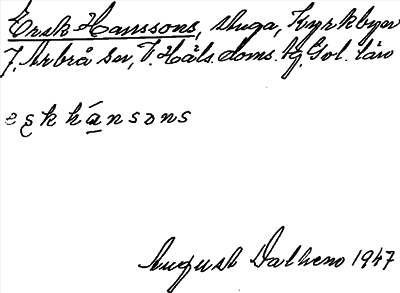 Ersk Hanssons, stuga, Kyrkbyn
7, Arbrå sn, V. Häls. doms. tg. Gvl. län
eskhánsons
August Dalheno 1947